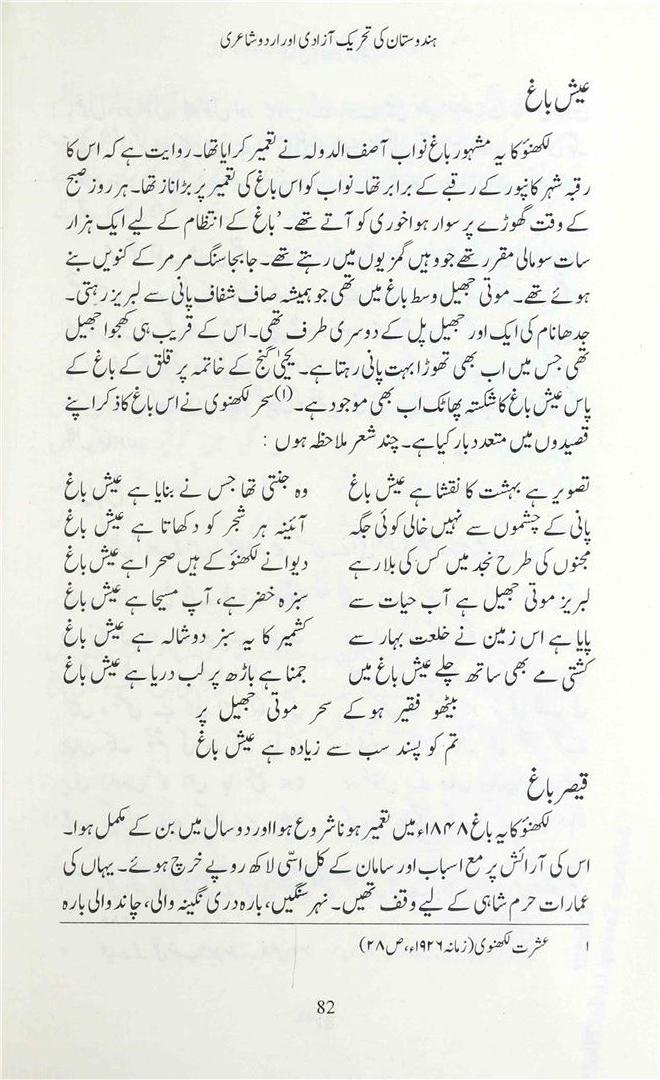 ہندوستان کی تحریک آزادی اور اردو شاعری
عیش باغ
لکھنؤ کا یہ مشہور باغ نواب آصف الدولہ نے تعمیر کرایا تھا۔ روایت ہے کہ اس کا
رقبہ شہر کانپور کے رقبے کے برابر تھا۔ نواب کو اس باغ کی تعمیر پر بڑا ناز تھا۔ ہر روز صبح
کے وقت گھوڑے پر سوار ہوا خوری کو آتے تھے۔ 'باغ کے انتظام کے لیے ایک ہزار
سات سو مالی مقرر تھے جو وہیں گمزیوں میں رہتے تھے۔ جابجا سنگ مرمر کے کنویں بنے
ہوئے تھے۔ موتی جھیل وسط باغ میں تھی جو ہمیشہ صاف شفاف پانی سے لبریز رہتی۔
جدھا نام کی ایک اور جھیل پل کے دوسری طرف تھی۔ اس کے قریب ہی کھجوا جھیل
تھی جس میں اب بھی تھوڑا بہت پانی رہتا ہے۔ یحییٰ گنج کے خاتمہ پر قلق کے باغ کے
پاس عیش باغ کا شکستہ پھاٹک اب بھی موجود ہے۔(۱) سحر لکھنوی نے اس باغ کا ذکر اپنے
قصیدوں میں متعدد بار کیا ہے۔ چند شعر ملاحظہ ہوں :
تصویر ہے بہشت کا نقشا ہے عیش باغ وہ جنتی تھا جس نے بنایا ہے عیش باغ
پانی کے چشموں سے نہیں خالی کوئی جگہ آئینہ ہر شجر کو دکھاتا ہے عیش باغ
مجنوں کی طرح نجد میں کس کی بلا رہے دیوانے لکھنؤ کے ہیں صحرا ہے عیش باغ
لبریز موتی جھیل ہے آب حیات سے سبزہ خضر ہے، آپ مسیحا ہے عیش باغ
پایا ہے اس زمین نے خلعت بہار سے کشمیر کا یہ سبز دوشالہ ہے عیش باغ
کشتی مے بھی ساتھ چلے عیش باغ میں جمنا ہے باڑھ پر لب دریا ہے عیش باغ
بیٹھو فقیر ہوکے سحر موتی جھیل پر
تم کو پسند سب سے زیادہ ہے عیش باغ
قیصر باغ
لکھنؤ کا یہ باغ ۱۸۴۸ء میں تعمیر ہونا شروع ہوا اور دو سال میں بن کے مکمل ہوا۔
اس کی آرائش پر مع اسباب اور سامان کے کل اسّی لاکھ روپے خرچ ہوئے۔ یہاں کی
عمارات حرم شاہی کے لیے وقف تھیں۔ نہر سنگیں، بارہ دری نگینہ والی، چاند والی بارہ
۱ عشرت لکھنوی (زمانہ ۱۹۲۶ء، ص ۲۸)
82